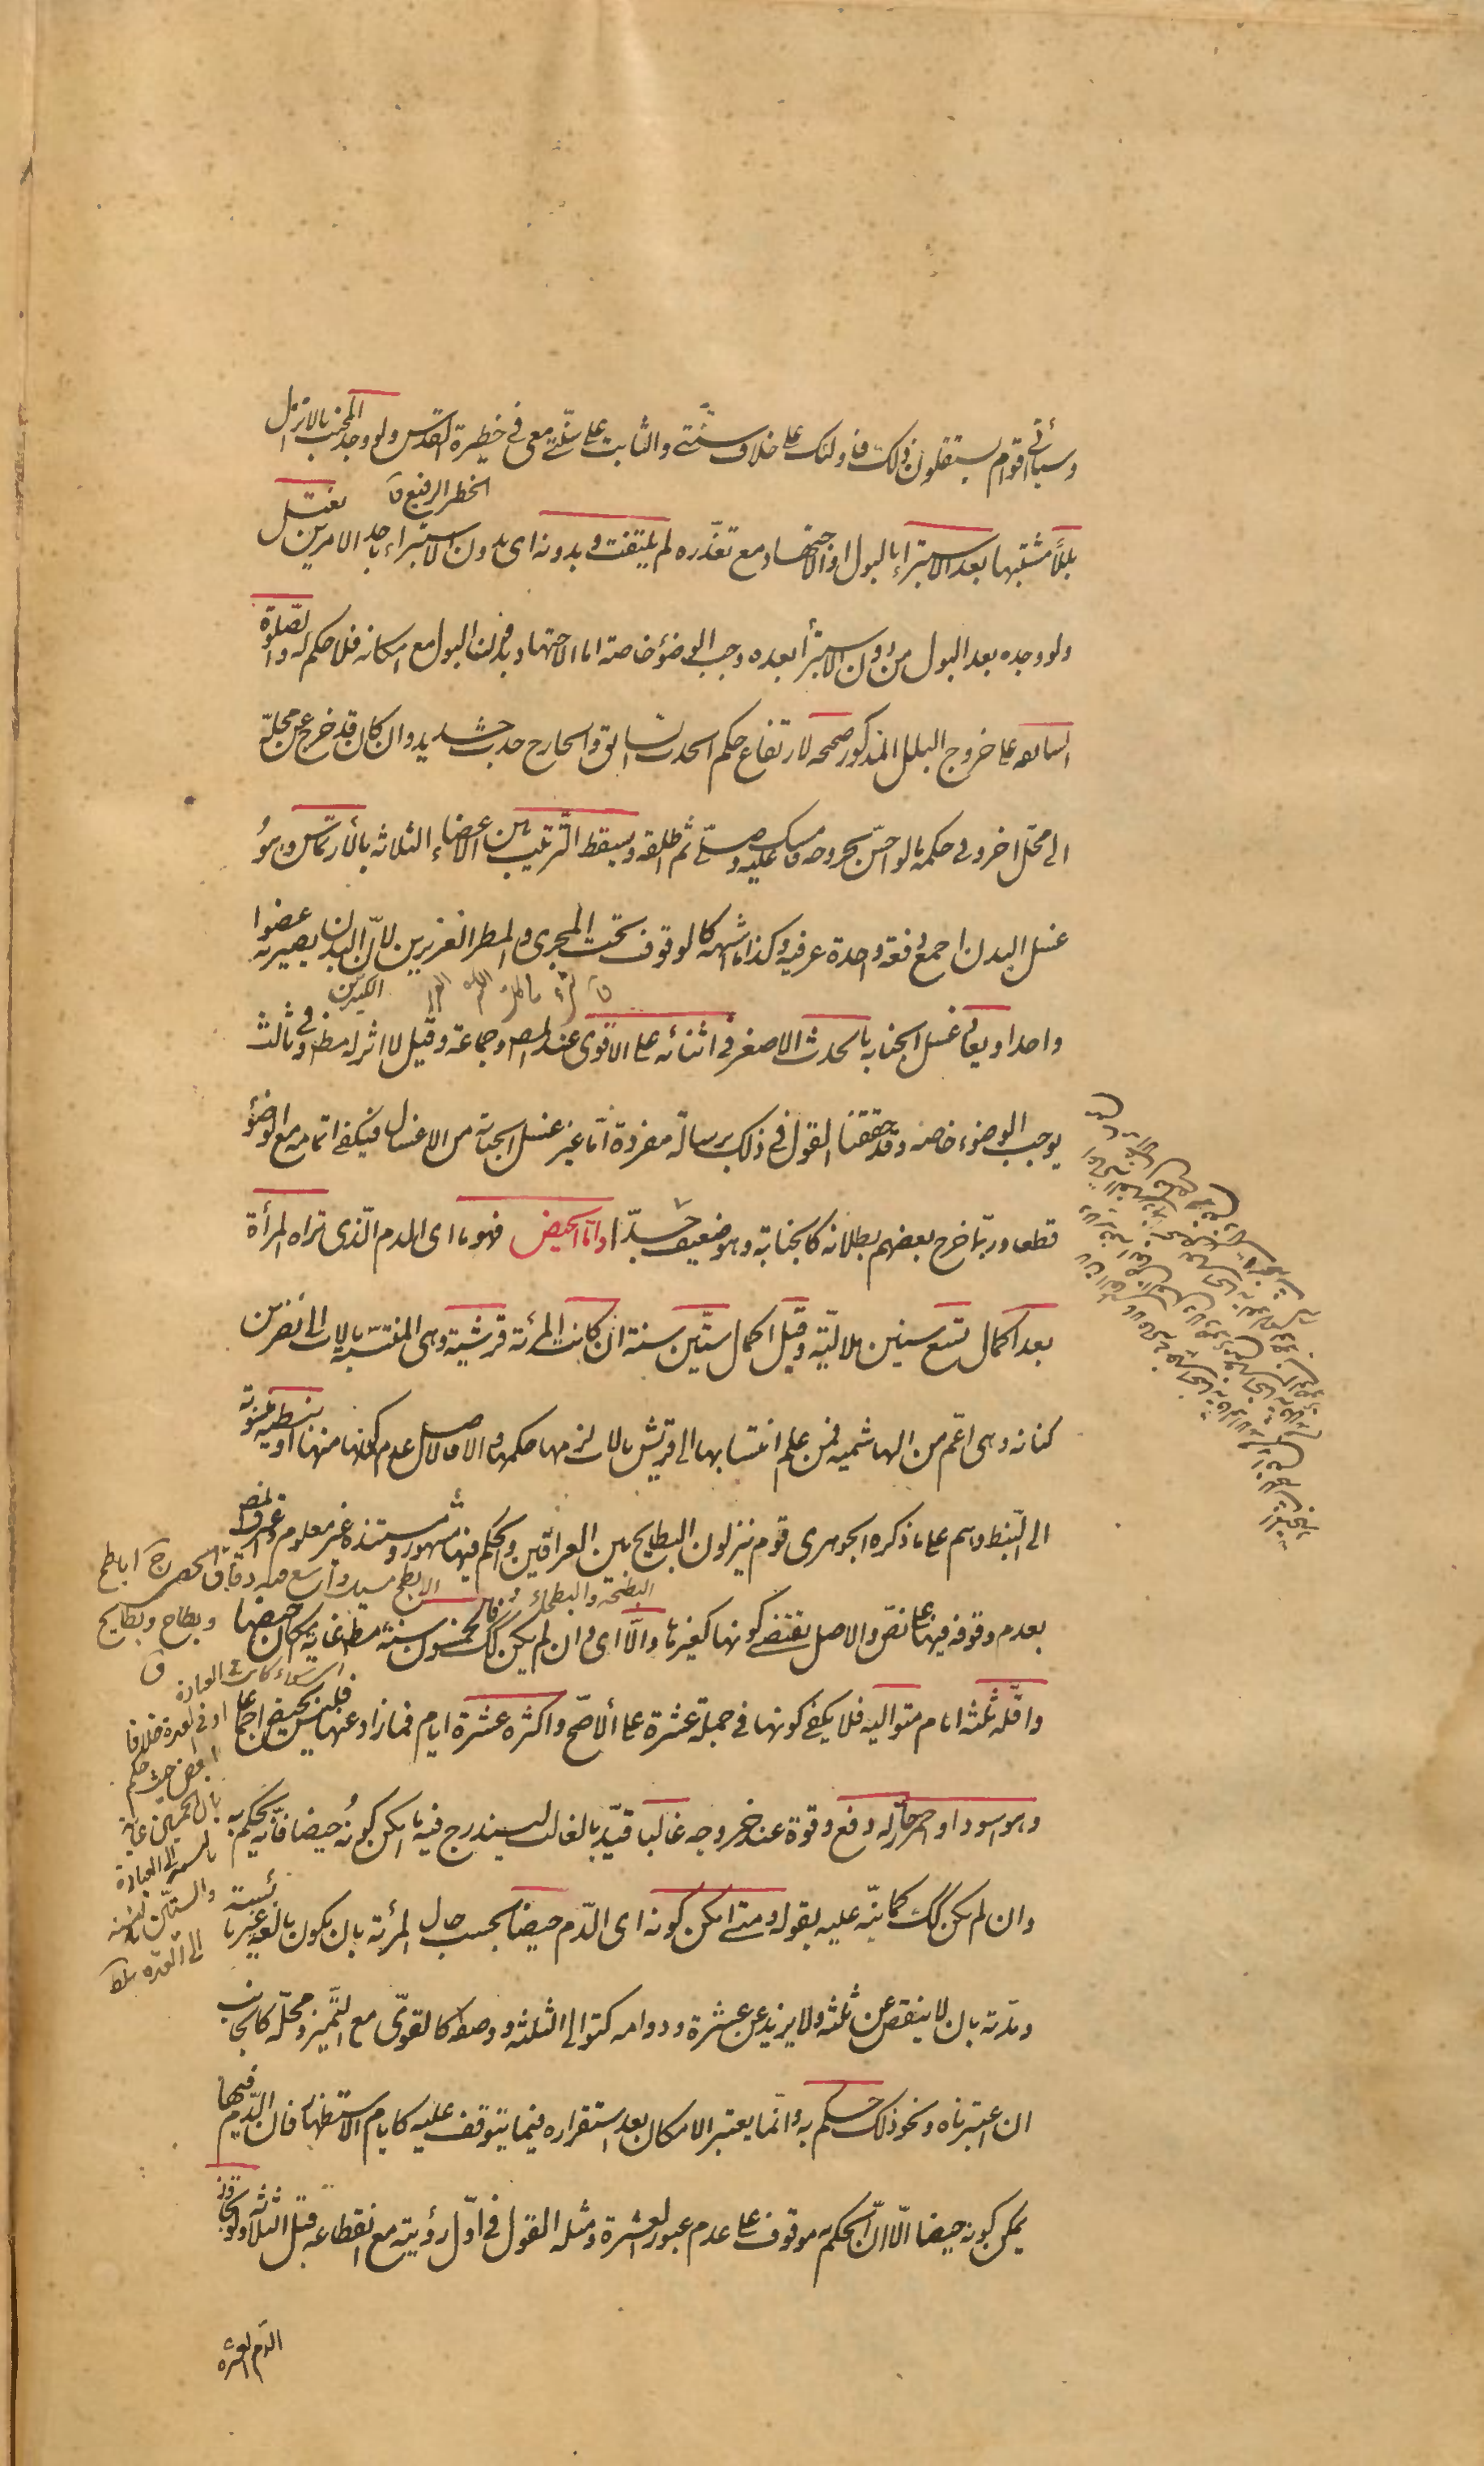 وسيأتي اقوام يستقلون ذلك فاولئك على خلاف سنتي والثابت على سنتي معى في حظيرة القدس ولو وجد المجنب بالانزال
الخطر الرفيع ق
بللاً مشتبها بعد الاستبراء بالبول او الاجتهاد مع تعذّره لم يلتفت وبدونه اى بدون الاستبراء باحد الامرين يغتسل
ولو وجده بعد البول من دون الاستبراء بعده وجب الوضوء خاصة اما الاجتهاد بدون البول مع امكانه فلا حكم له والصّلوة
السابقة على خروج البلل المذكور صحيحة لارتفاع حكم الحدث السابق والخارج حدث جديد وان كان قد خرج عن محلّه
الى محل اخر وفى حكمه ما لو احسّ بخروجه فامسك عليه وصلّى ثم اطلقه ويسقط الترتيب بين الاعضاء الثلاثة بالارتماس وهو
غسل البدن اجمع دفعة واحدة عرفية وكذا ما اشبهه كالوقوف تحت المجرى والمطر الغزيرين لانّ البدن يصير به عضوا
الكثيرين
واحدا ويعاد غسل الجنابة بالحدث الاصغر في اثنائه على الاقوى عند المصـ وجماعة وقيل لا اثر له مطـ وفي ثالث
يوجب الوضوء خاصة وقد حققنا القول فى ذلك برسالة مفردة امّا غير غسل الجنابة من الاغسال فيكفى اتمامه مع الوضوء
قطعا وربّما خرج بعضهم بطلانه كالجنابة وهو ضعيف جدّا وامّا الحيض فهو ما اى الدم الّذى تراه المرأة
بعد اكمال تسع سنين هلاليّة وقبل اكمال ستّين سنة ان كانت المرأة قرشية وهى المنتسبة بالاب الى نضر بن
كنانة وهى اعمّ من الهاشمية فمن علم انتسابها الى قريش بالاب لزمها حكمها والا فالاصل عدم كونها منها او نبطية منسوبة
الى النّبط وهم على ما ذكره الجوهرى قوم ينزلون البطايح بين العراقين والحكم فيها مشهور ومستنده غير معلوم واعترف المصـ
الابطح مسيل واسع فيه دقاق الحصى ج اباطح
بعدم وقوفه فيها على نصّ والاصل يقتضى كونها كغيرها والّا اى وان لم يكن كك فالخمسون سنة مطـ غاية امكان حيضها
وبطاح وبطايح
ق
واقلّه ثلثة ايام متوالية فلا يكفى كونها فى جملة عشرة على الاصحّ واكثره عشرة ايام فما زاد عنها فليس بحيض اجماعا
وهو اسود او احمر حارّ له دفع وقوة عند خروجه غالبا قيّد بالغالب ليندرج فيه ما امكن كونه حيضا فانّه يحكم به
وان لم يكن كك كما نبّه عليه بقوله ومتى امكن كونه اى الدّم حيضا بحسب حال المرأة بان يكون بالغة غير يائسة
ومدّته بان لا ينقص عن ثلثة ولا يزيد عن عشرة ودوامه كتوالى الثلثة ووصفه كالقوىّ مع التّميز ومحلّه كالجانب
ان اعتبرناه ونحو ذلك حكم به وانّما يعتبر الامكان بعد استقراره فيما يتوقف عليه كايام الاستظهار فان الدّم فيها
يمكن كونه حيضا الّا انّ الحكم به موقوف على عدم عبور العشرة ومثله القول فى اوّل رؤيته مع انقطاعه قبل الثلاثة ولو تجاوز
الدّم العشرة